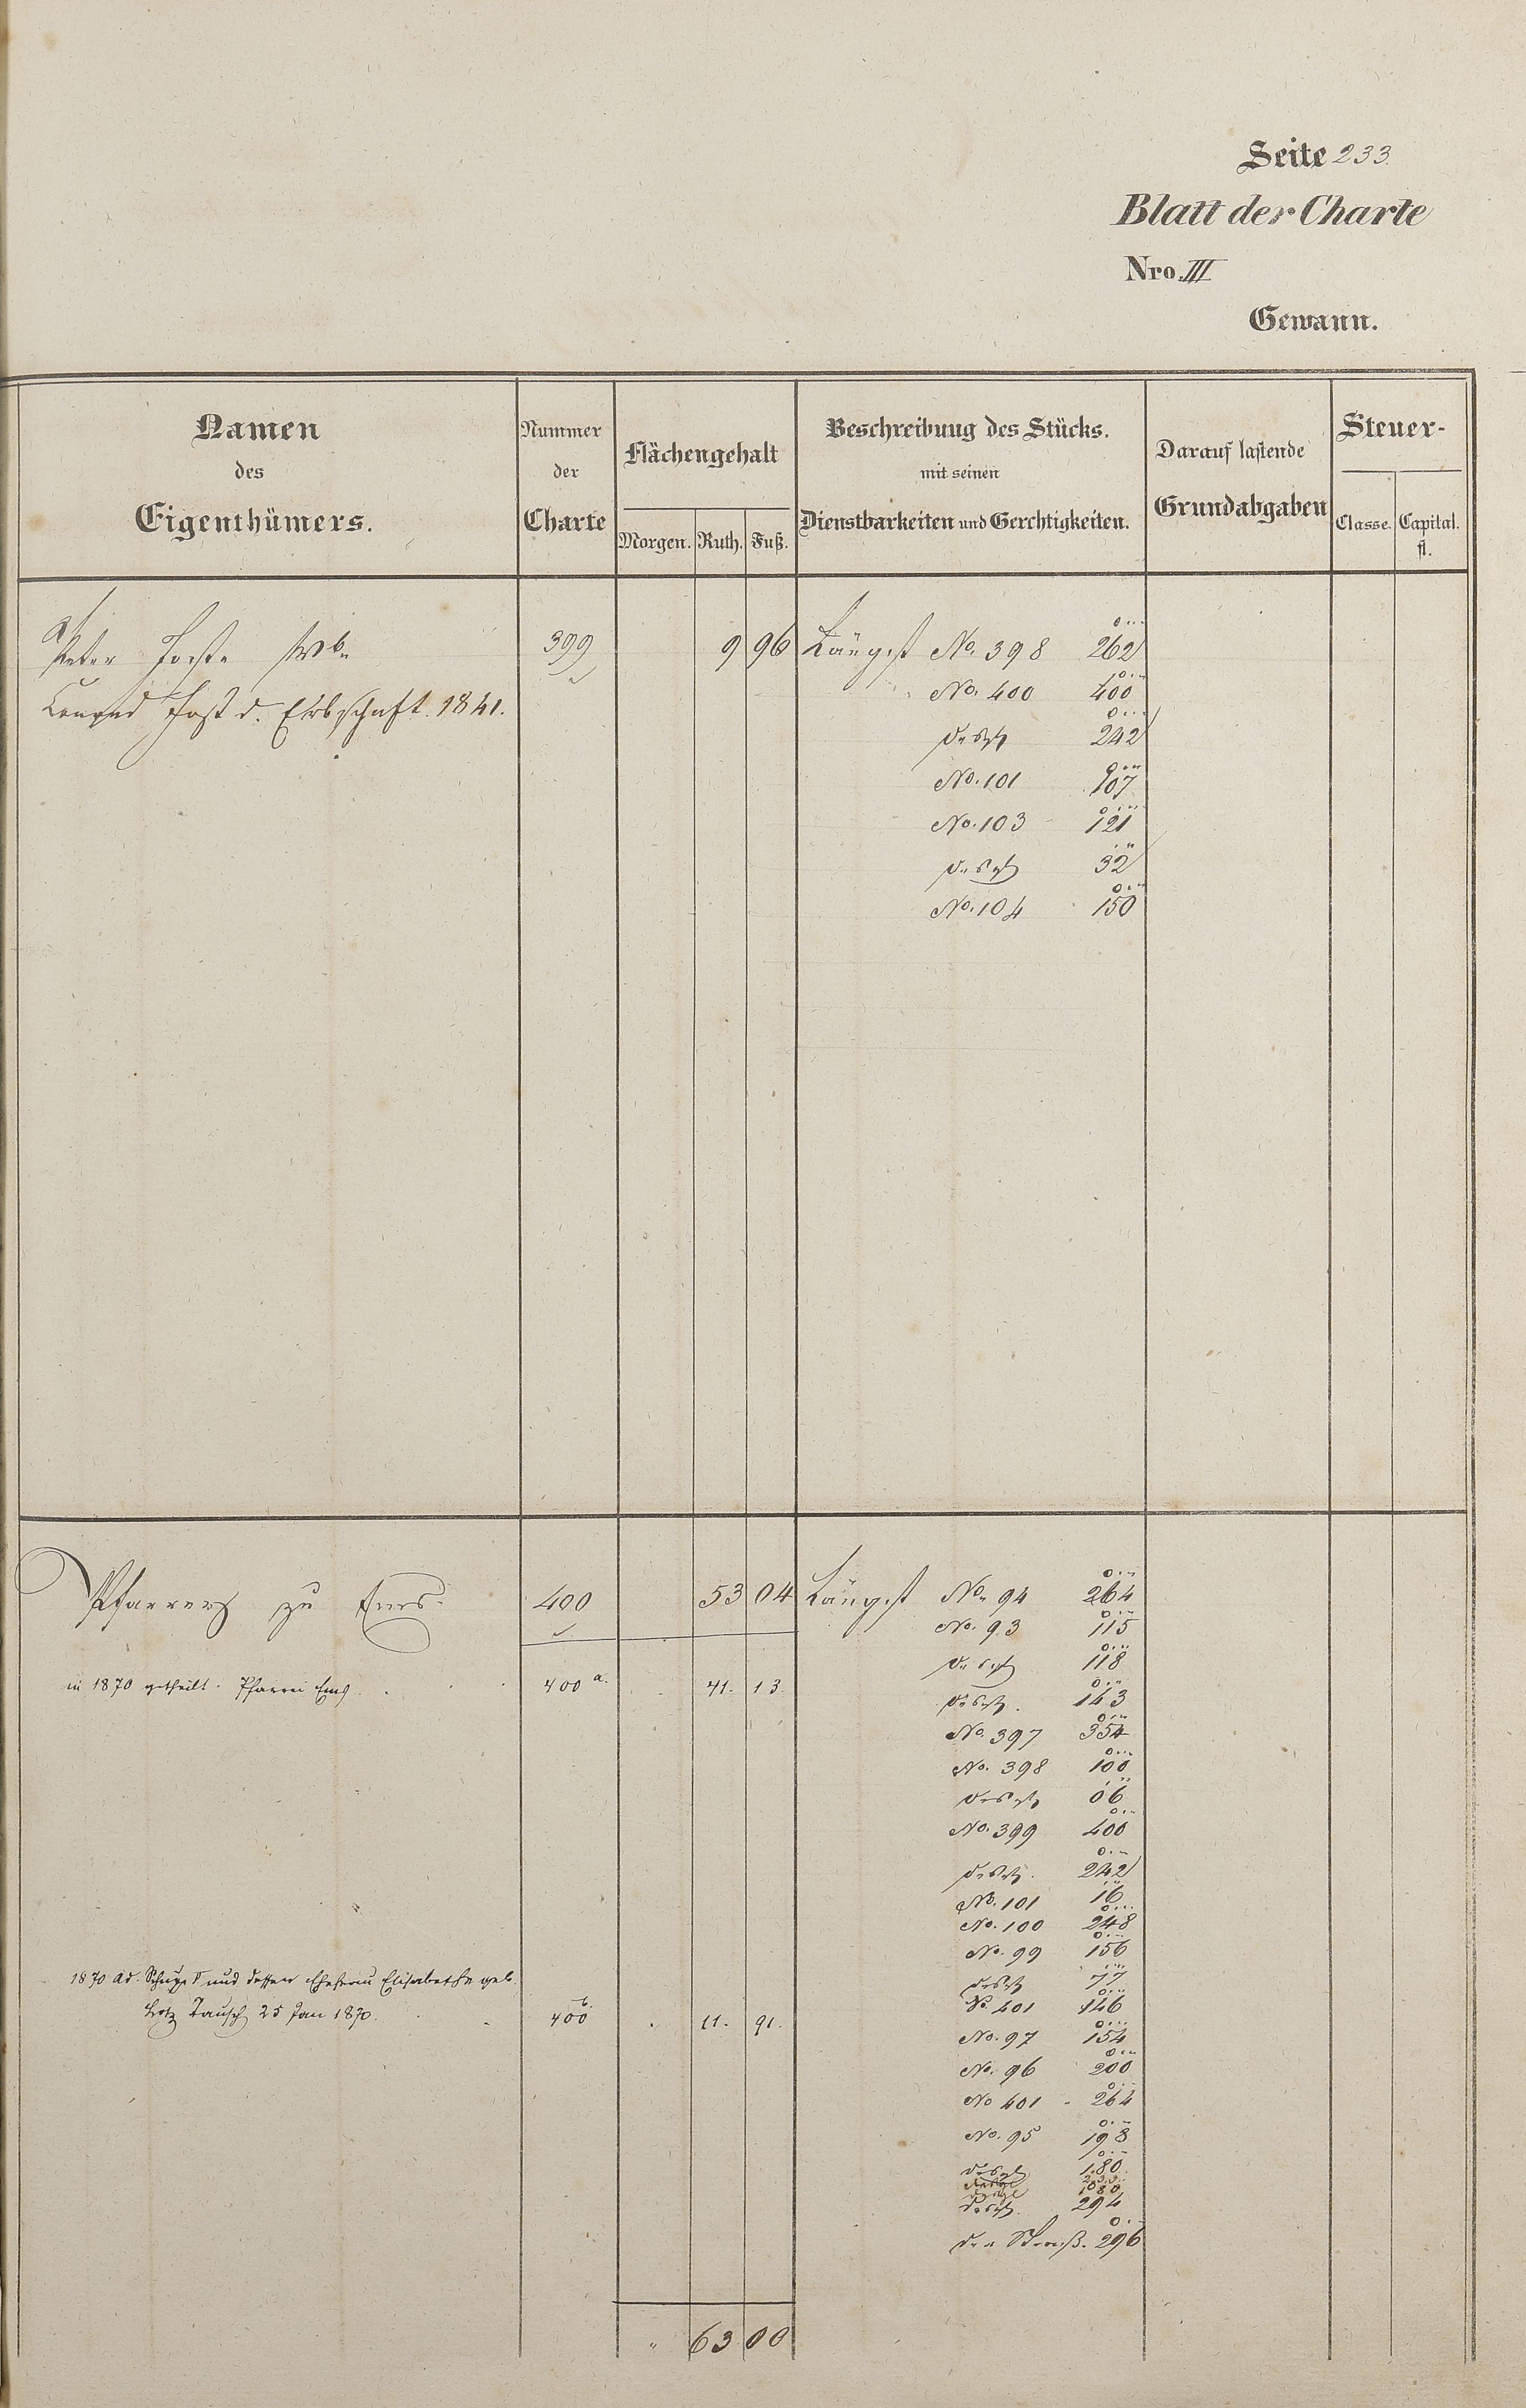 Seite 233.
Blatt der Charte
Nro. III
Gewann.
Namen
des
Eigenthümers.
Nummer
der
Charte
Flächengehalt
Morgen. Ruth. Fuß.
Beschreibung des Stücks.
mit seinen
Dienstbarkeiten und Gerchtigkeiten.
Darauf lastende
Grundabgaben
Steuer-
Classe. Capital.
fl.
Peter 399 9 96 Längst No. 398 262
No. 400 400
Conrad d. Erbschaft. 1841.
desgl 242
No. 101 107
No. 103 121
desgl 32
No. 104 150
Pfarrey zu Ems. 400 53 04 Längst No. 94 264
No. 93 115
desgl 118
in 1870 getheilt. Pfarrei Ems. 400 a. 41. 13.
desgl. 143
No. 397 354
No. 398 100
desgl 06
No. 399 400
desgl. 242
No. 101 16
No. 100 248
No. 99 156
1870 Ad. und dessen Ehefrau Elisabetha geb.
desgl 77
No. 401 146
Lotz Tausch 25 Jan 1870. 400 b. 11. 91.
No. 97 154
No. 96 200
No 401 264
No. 95 198
desgl 180
desgl 1080
desgl. 294
der Straß. 296
" 63 00